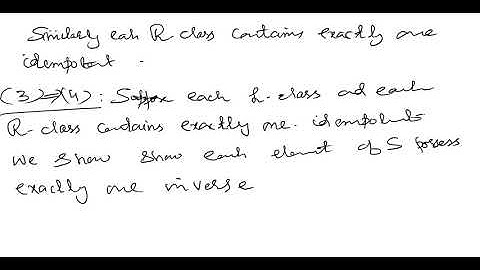 Similarly each R class contains exactly one
idempotent .
(3)⇒(4) : Suppose each L-class and each
R-class contains exactly one idempotent
we show show each element of S possess
exactly one inverse